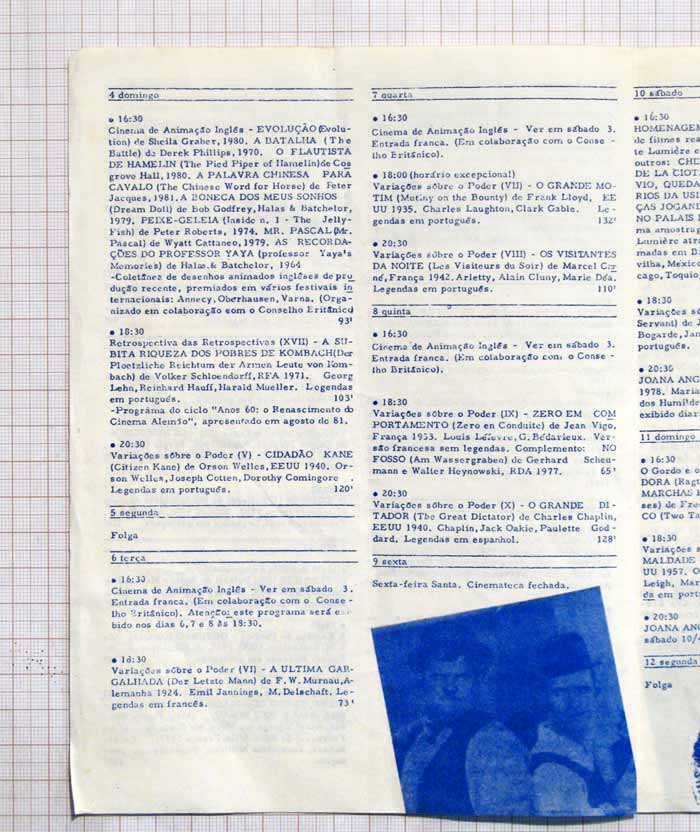 4 domingo
• 16:30
Cinema de Animação Inglês - EVOLUÇÃO (Evolu-
tion) de Sheila Graber, 1980. A BATALHA (The
Battle) de Derek Phillips, 1970. O FLAUTISTA
DE HAMELIN (The Pied Piper of Hamelin) de Cos
grove Hall, 1980. A PALAVRA CHINESA PARA
CAVALO (The Chinese Word for Horse) de Peter
Jacques, 1981. A BONECA DOS MEUS SONHOS
(Dream Doll) de Bob Godfrey, Halas & Batchelor,
1979. PEIXE-GELEIA (Inside n. 1 - The Jelly-
Fish) de Peter Roberts, 1974. MR. PASCAL (Mr.
Pascal) de Wyatt Cattaneo, 1979. AS RECORDA-
ÇÕES DO PROFESSOR YAYA (professor Yaya's
Memories) de Halas & Batchelor, 1964
-Coletânea de desenhos animados ingleses de pro
dução recente, premiados em vários festivais in
ternacionais: Annecy, Oberhausen, Varna. (Orga-
nizado em colaboração com o Conselho Britânico)
93'
• 18:30
Retrospectiva das Retrospectivas (XVII) - A SU-
BITA RIQUEZA DOS POBRES DE KOMBACH (Der
Ploetzliche Reichtum der Armen Leute von Kom-
bach) de Volker Schloendorff, RFA 1971. Georg
Lehn, Reinhard Hauff, Harald Mueller. Legendas
em português. 103'
-Programa do ciclo "Anos 60: o Renascimento do
Cinema Alemão", apresentado em agosto de 81.
• 20:30
Variações sôbre o Poder (V) - CIDADÃO KANE
(Citizen Kane) de Orson Welles, EEUU 1940. Or-
son Welles, Joseph Cotten, Dorothy Comingore .
Legendas em português. 120'
5 segunda
Folga
6 terça
• 16:30
Cinema de Animação Inglês - Ver em sábado 3.
Entrada franca. (Em colaboração com o Conse -
lho Britânico). Atenção: este programa será e
bido nos dias 6, 7 e 8 às 18:30.
• 18:30
Variações sôbre o Poder (VI) - A ULTIMA GAR-
GALHADA (Der Letzte Mann) de F. W. Murnau, A-
lemanha 1924. Emil Jannings, M. Delschaft. Le-
gendas em francês. 73'
7 quarta
• 16:30
Cinema de Animação Inglês - Ver em sábado 3.
Entrada franca. (Em colaboração com o Conse -
lho Britânico).
• 18:00 (horário excepcional)
Variações sôbre o Poder (VII) - O GRANDE MO-
TIM (Mutiny on the Bounty) de Frank Lloyd, EE
UU 1935. Charles Laughton, Clark Gable. Le -
gendas em português. 132'
• 20:30
Variações sôbre o Poder (VIII) - OS VISITANTES
DA NOITE (Les Visiteurs du Soir) de Marcel Car
né, França 1942. Arletty, Alain Cluny, Marie Déa.
Legendas em português. 110'
8 quinta
• 16:30
Cinema de Animação Inglês - Ver em sábado 3.
Entrada franca. (Em colaboração com o Conse -
lho Britânico).
• 18:30
Variações sôbre o Poder (IX) - ZERO EM COM
PORTAMENTO (Zero en Conduite) de Jean Vigo,
França 1933. Louis Lefevre, G. Bédarieux. Ver-
são francesa sem legendas. Complemento: NO
FOSSO (Am Wassergraben) de Gerhard Scheu-
mann e Walter Heynowski, RDA 1977. 65'
• 20:30
Variações sôbre o Poder (X) - O GRANDE DI-
TADOR (The Great Dictator) de Charles Chaplin,
EEUU 1940. Chaplin, Jack Oakie, Paulette God -
dard. Legendas em espanhol. 128'
9 sexta
Sexta-feira Santa. Cinemateca fechada.
10 sábado
• 16:30
HOMENAGEM
de filmes rea
te Lumière c
outros: CHE
DE LA CIOT
VIO, QUEDA
RIOS DA USI
ÇAS JOGANI
NO PALAIS I
ma amostrag
Lumière atra
madas em D
vilha, México
cago, Toquio,
• 18:30
Variações sô
Servant) de J
Bogarde, Jan
português.
• 20:30
JOANA ANG
1978. Maria
dos Humilde
exibido diar
11 domingo
• 16:30
O Gordo e o
DORA (Ragt
MARCHAS I
ses) de Fre
CO (Two Ta
• 18:30
Variações s
MALDADE
UU 1957. O
Leigh, Mar
da em port
• 20:30
JOANA ANG
sábado 10/4
12 segunda
Folga